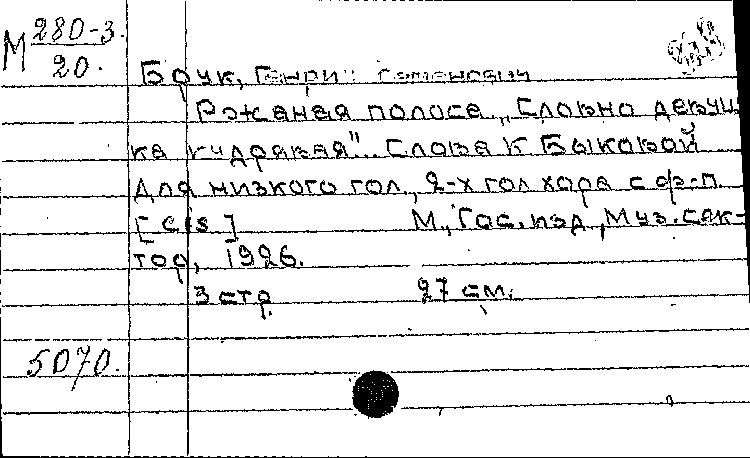 М 280-3.
20.
Брук, Генрих Семенович
Ржаная полоса „Словно девуш
ка кудрявая". Слова К Быковой
Для низкого гол., 2-х гол хора с ф-п.
[cis] М., Гос. изд, Муз. сек-
тор, 1926.
3 стр 27 см.
5070.